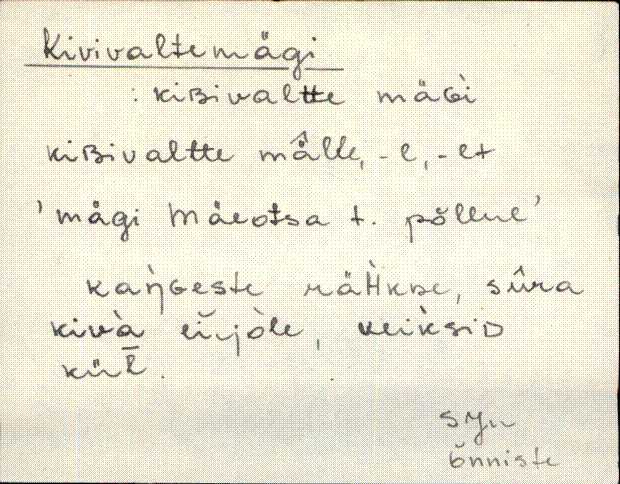 Kivivaltemägi
: kiʙivaltte mäɢì
kiʙivaltte mä̂lle, -l, -lt
'mägi Mäeotsa t. põllul'
kaŋ̀ɢeste räH̀kʙe, sûra
kivà
veìksiᴅ
kül̄.
syn
Õnniste